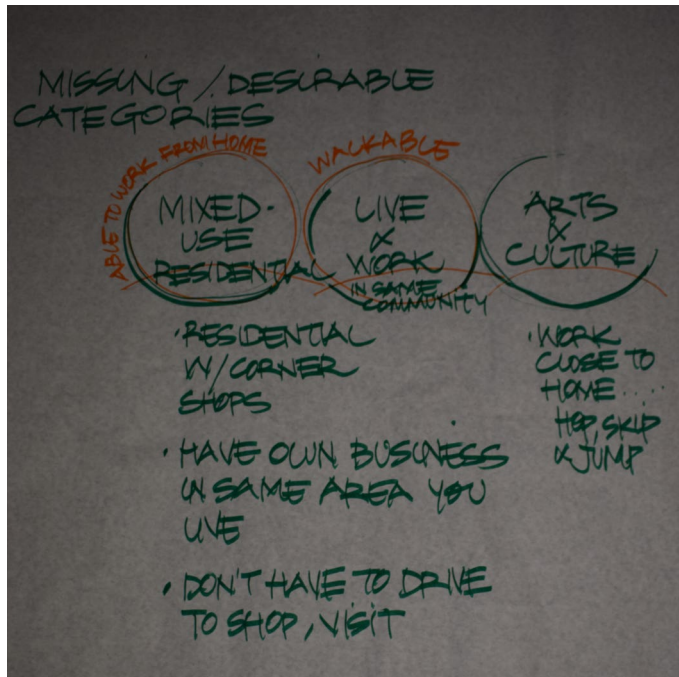 MISSING / DESIRABLE
CATEGORIES
ABLE TO WORK FROM HOME
MIXED-
USE
RESIDENTIAL
WALKABLE
LIVE
&
WORK
IN SAME
COMMUNITY
ARTS
&
CULTURE
• RESIDENTIAL
W/ CORNER
SHOPS
• HAVE OWN BUSINESS
IN SAME AREA YOU
LIVE
• DON'T HAVE TO DRIVE
TO SHOP, VISIT
• WORK
CLOSE TO
HOME....
HOP, SKIP
& JUMP